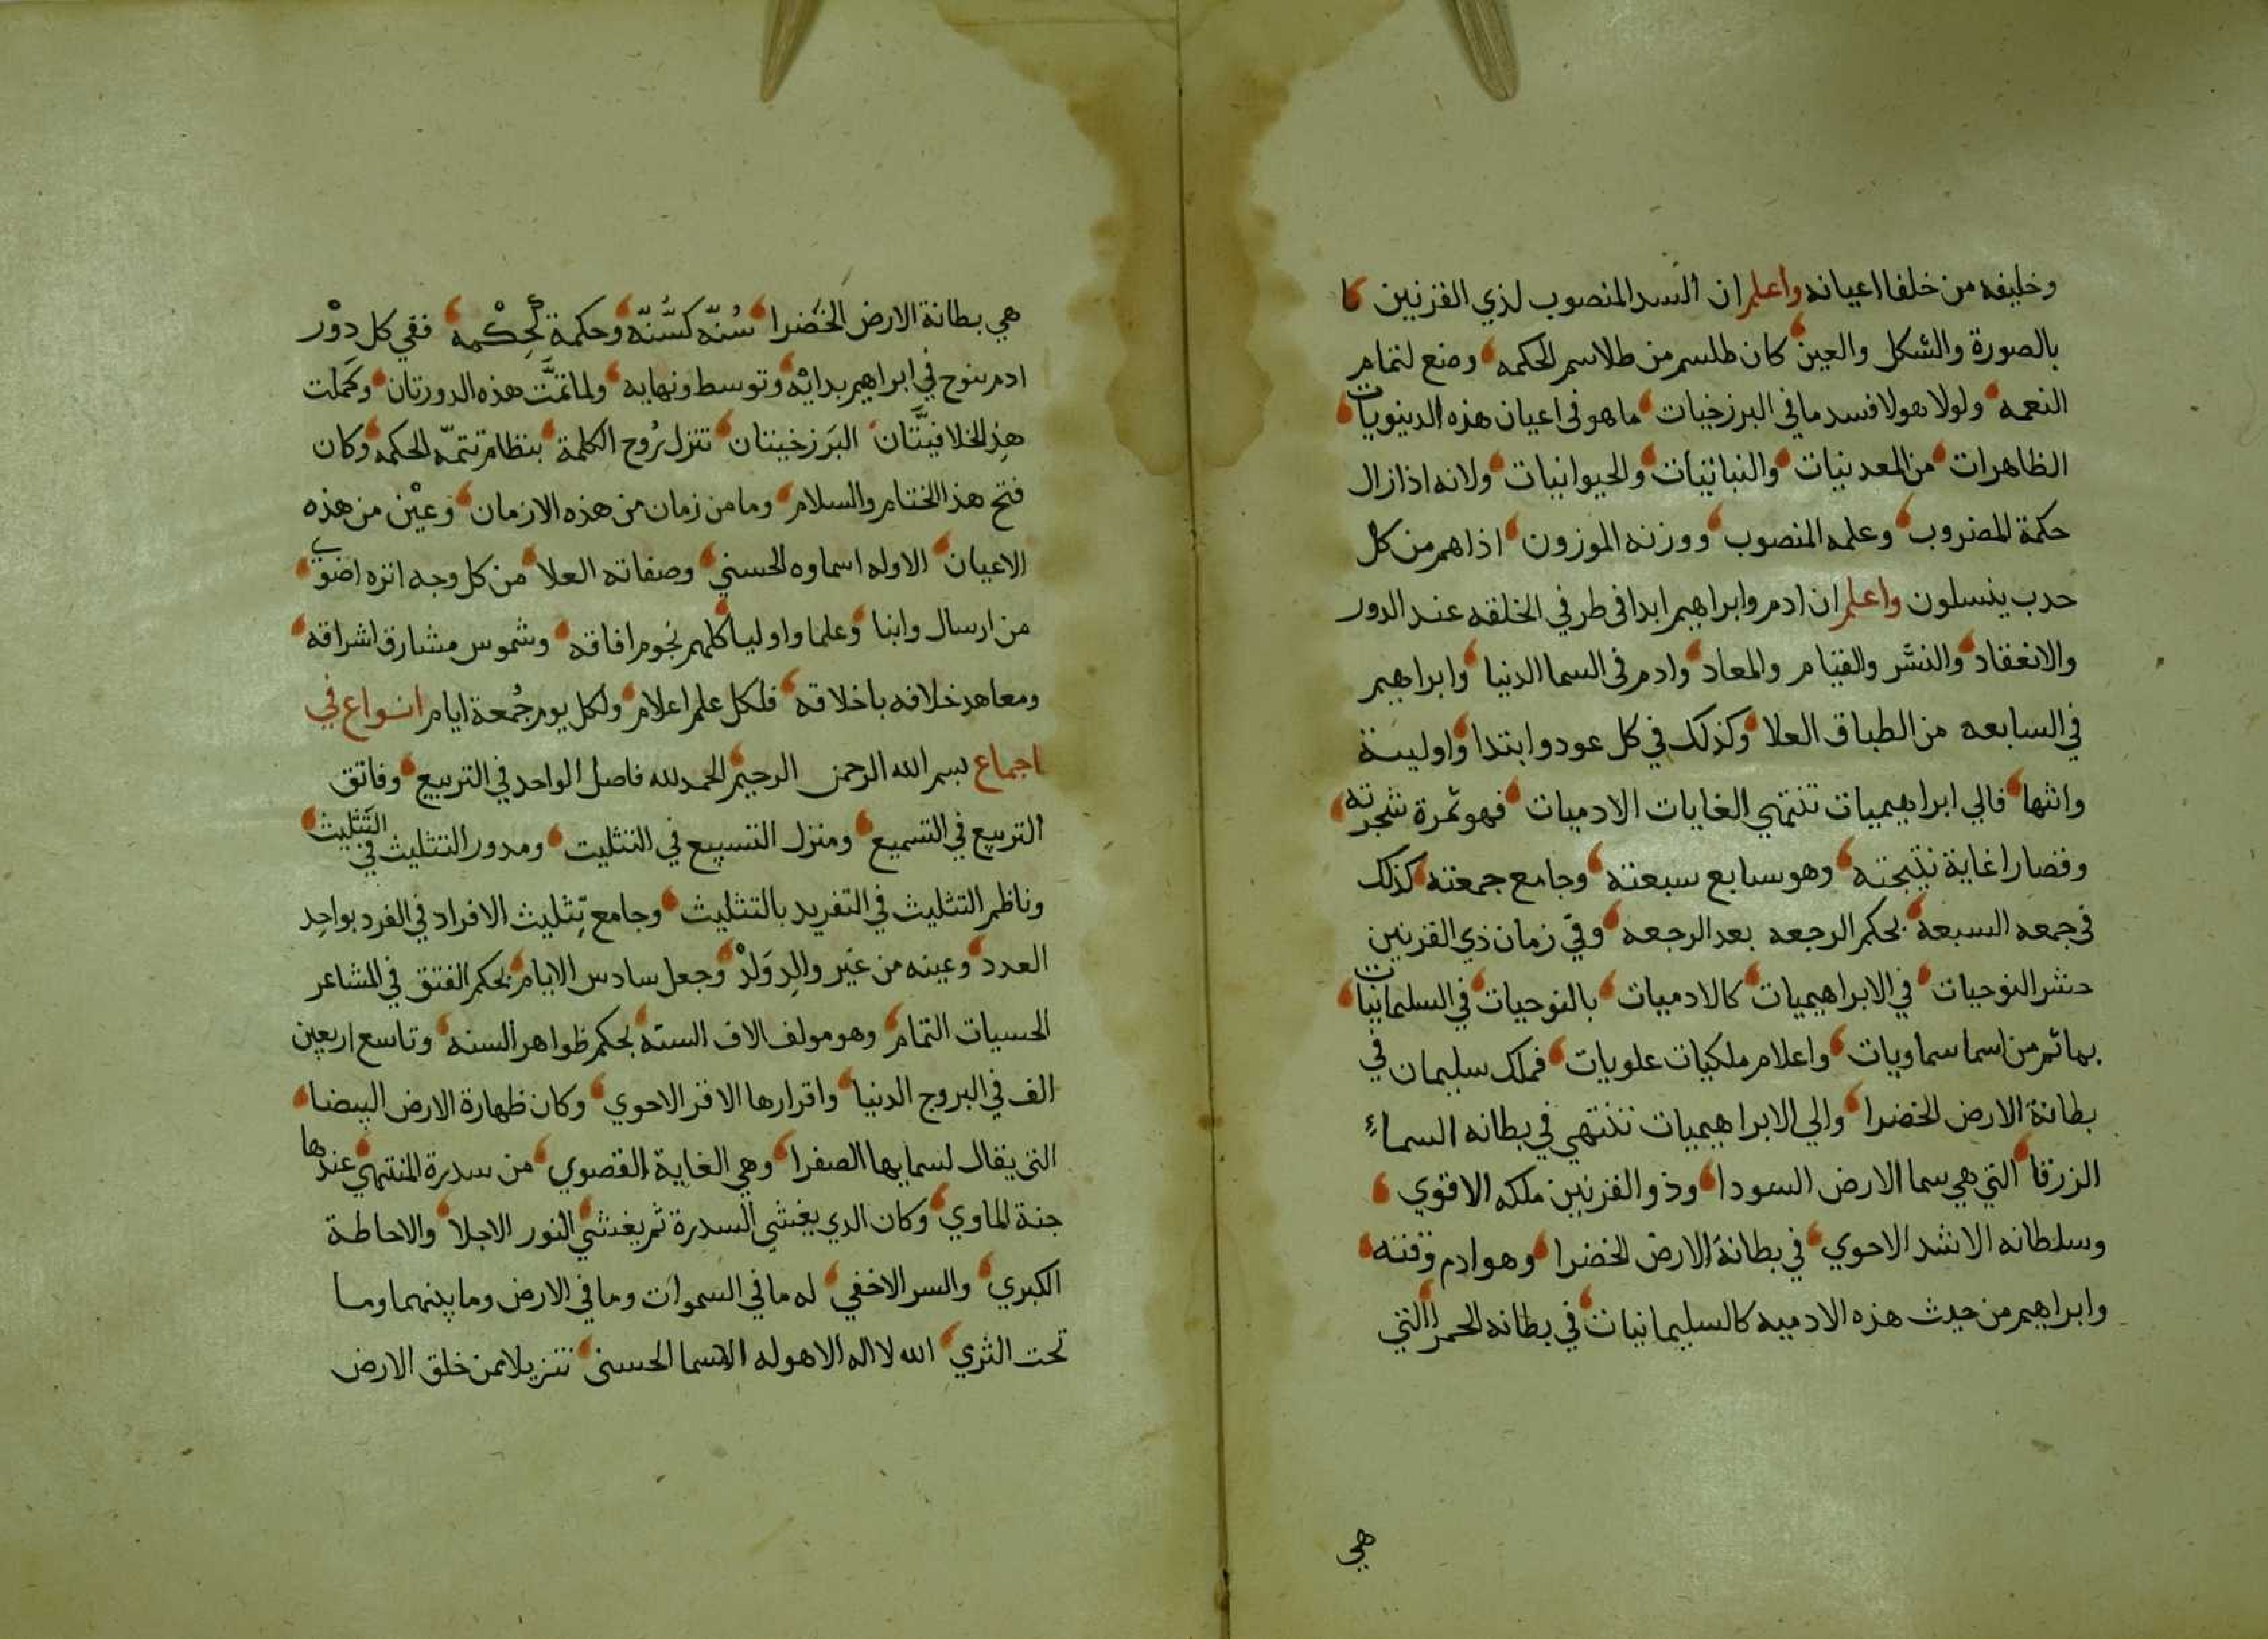 وخليفه من خلفا اعيانه واعلم ان السد المنصوب لذي القرنين كا
بالصورة والشكل والعين كان طلسم من طلاسم الحكمه وضع لتمام
النعمه ولولا هولا فسد ما في البرزخيات ما هو في اعيان هذه الدينويات
الظاهرات من المعدنيات والنباتيات والحيوانيات ولانه اذا زال
حكمة المضروب وعلمه المنصوب ووزنه الموزون اذا هم من كل
حدب ينسلون واعلم ان ادم وابراهيم ابدا في طرفي الخلقه عند الدور
والانعقاد والنشر والقيام والمعاد وادم في السما الدنيا وابراهيم
في السابعه من الطباق العلا وكذلك في كل عود وابتدا واولية
وانتها فالي ابراهيميات تنتهي الغايات الادميات فهو ثمرة شجرته
وقصارا غاية نتيجته وهو سابع سبعته وجامع جمعته كذلك
في جمعه السبعة بحكم الرجعه بعد الرجعه وفي زمان ذي القرنين
حشر النوحيات في الابراهيميات كالادميات بالنوحيات في السليمانيات
بهائم من اسما سماويات واعلام ملكيات علويات فملك سليمان في
بطانة الارض الخضرا والي الابراهيميات تنتهي في بطانه السماء
الزرقا التي هي سما الارض السودا وذو القرنين ملكه الاقوي
وسلطانه الاشد الاحوي في بطانة الارض الخضرا وهو ادم وقته
وابراهيم من حيث هذه الادميه كالسليمانيات في بطانه الحمرا التي
هي
هي بطانة الارض الخضرا سُنّه كسُنّه وحكمة لحكمه ففي كل دور
ادم بنوح في ابراهيم بدائه وتوسط ونهايه ولما تمّت هذه الدورتان وكملت
هذ الخلافيتّان البرزخيتان تنزل رُوح الكلمة بنظام تتمّه الحكمه وكان
فتح هذا الختام والسلام وما من زمان من هذه الازمان وعين من هذه
الاعيان الا وله اسماوه الحسني وصفاته العلا من كل وجه انزه اضوي
من ارسال وابنا وعلما واوليا كلهم نجوم افاقه وشموس مشارق اشراقه
ومعاهد خلافه باخلاقه فلكل علم اعلام ولكل يوم جُمعة ايام انواع في
اجماع بسم الله الرحمن الرحيم الحمد لله فاصل الواحد في التربيع وفاتق
التربيع في التسميع ومنزل التسبيع في التثليت ومدور التثليث في التثليث
وناظم التثليث في التفريد بالتثليث وجامع تثليث الافراد في الفرد بواحد
العدد وعينه من غير والد وَلدْ وجعل سادس الايام بحكم الفتق في المشاعر
الحسيات التمام وهو مولف الاف الستة بحكم ظواهر السنه وتاسع اربعين
الف في البروج الدنيا واقرارها الاقر الاحوي وكان ظهارة الارض البيضا
التي يقال لسمايها الصفرا وهي الغاية القصوي من سدرة المنتهي عندها
جنة الماوي وكان الدي يغشي السدرة ثم يغشي النور الاجلا والاحاطة
الكبري والسر الاخفي له ما في السموات وما في الارض وما بينهما وما
تحت الثري الله لا اله الا هو له الاسما الحسنى تنزيلا ممن خلق الارض